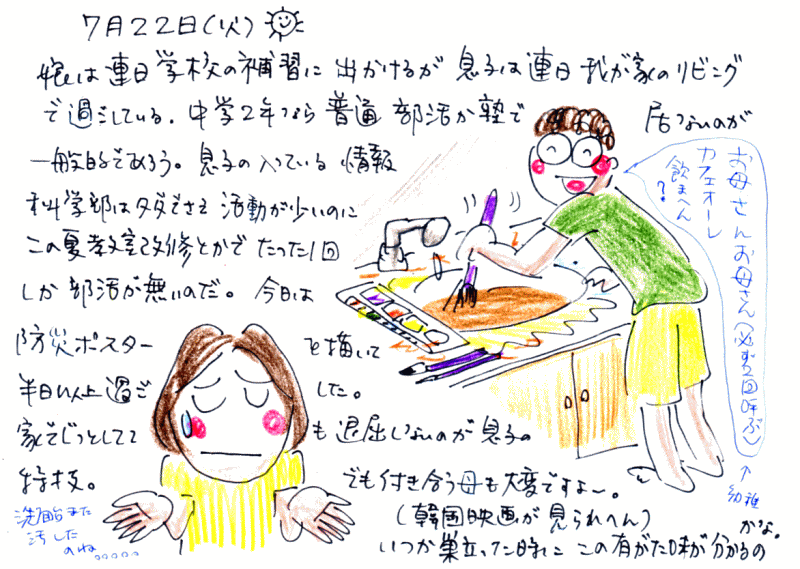 7月22日(火)
娘は連日学校の補習に出かけるが息子は連日我が家のリビング
で過ごしている。中学2年なら普通部活か塾で居ないのが
一般的であろう。息子の入っている情報
科学部はタダでさえ活動が少いのに
この夏教室改修とかでたった1回
しか部活が無いのだ。今日は
防災ポスターを描いて
半日以上過ごした。
家でじっとしてても退屈しないのが息子の
特技。でも付き合う母も大変ですよ〜。
(韓国映画が見られへん)
いつか巣立った時にこの有がた味が分かるの
かな。
お母さんお母さん(必ず2回呼ぶ)
カフェオーレ
飲まへん
?
↑
幼稚
洗面台また
汚した
のね.....